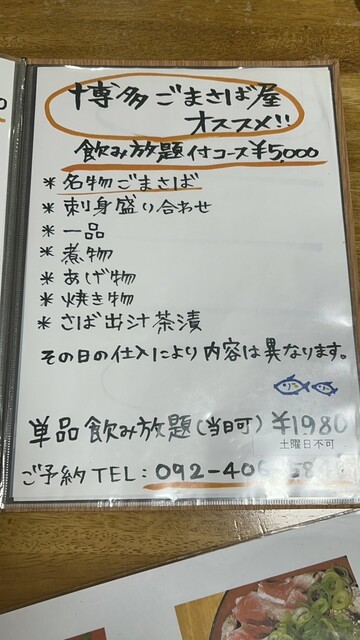 博多ごまさば屋
オススメ!!
飲み放題付コース¥5,000
* 名物ごまさば
* 刺身盛り合わせ
* 一品
* 煮物
* あげ物
* 焼き物
* さば出汁茶漬
その日の仕入により内容は異なります。
単品飲み放題(当日可)¥1980
土曜日不可
ご予約TEL:092-406-